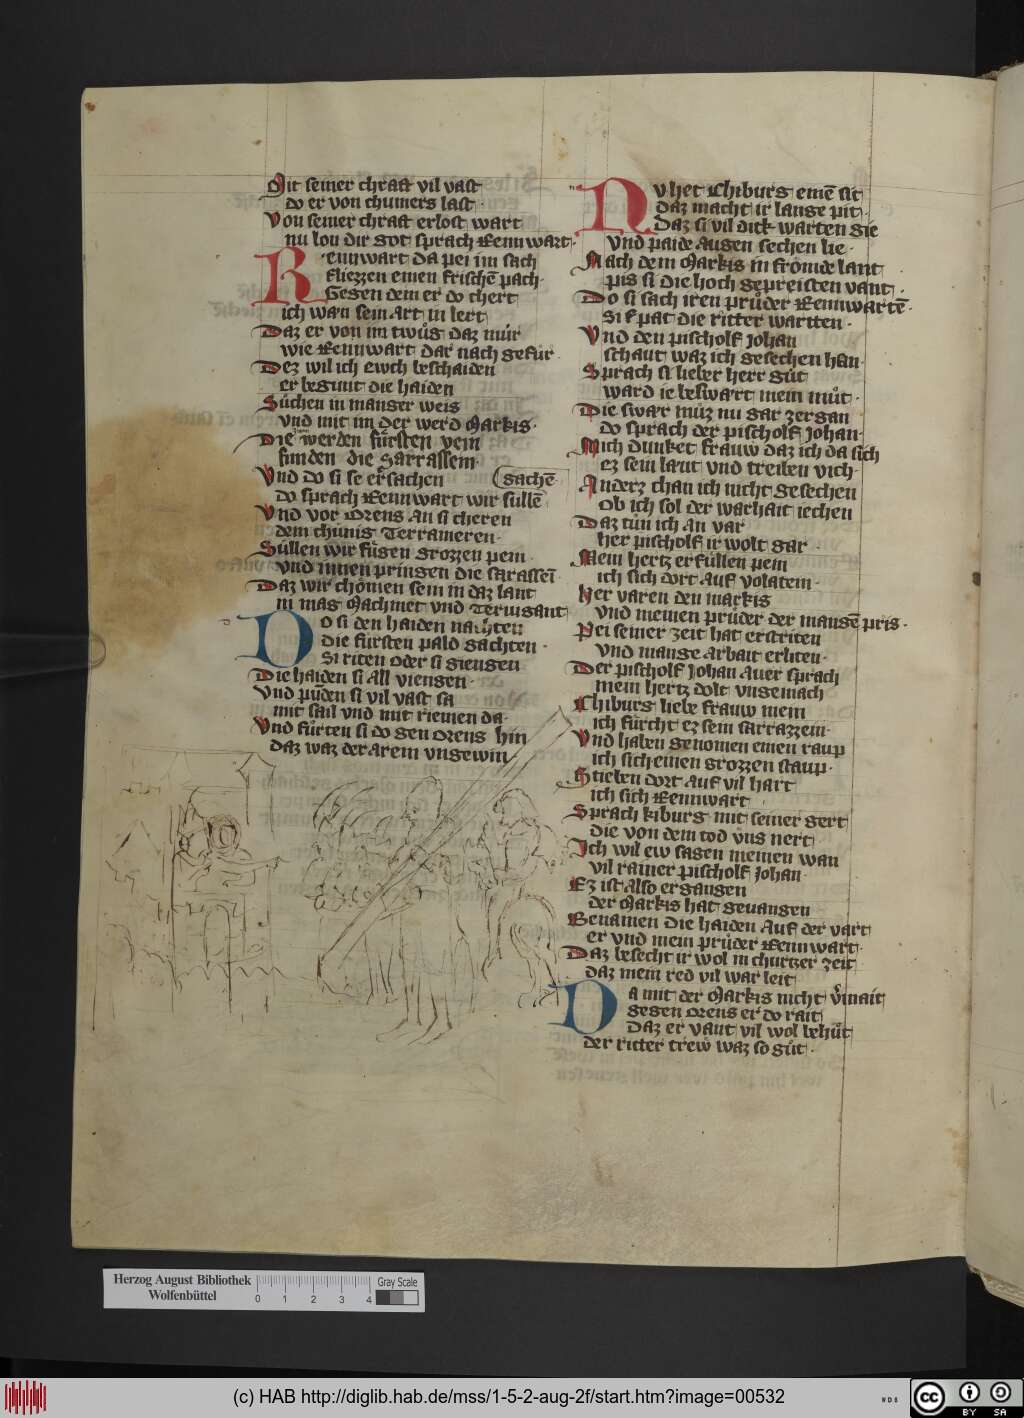 Mit seiner chraft vil vast
do er von chumers last ·
Von seiner chraft erlost wart
nu lon dir got sprach Rennwart ·
Rennwart da pei im sach
fliezzen einen frischē pach ·
Gegen dem er do chert
ich wān sein art in lert
Daz er von im twůg daz mūr
wie Rennwart dar nach gefůr ·
Dez wil ich ewch beschaiden
er begunt die haiden
Sůchen in manger weis
vnd mit im der werd Markis ·
Die werden fůrsten vein
funden die Sarrassein ·
Vnd do si se ersachen
sachē
do sprach Rennwart wir sullē
Vnd vor Orens an si cheren
dem chůnig Terrameren ·
Sůllen wir fůgen grozzen pein ·
vnd innen pringen die sarasseī
Daz wir chōmen sein in daz lant
in mag Machmet vnd Teruigant
Do si den haiden nachten
die fůrsten pald gachten ·
Si riten oder si giengen
Die haiden si all viengen ·
Vnd půnden si vil vast sa
mit sail vnd mit riemen da ·
Vnd fůrten si do gen orens hin
daz waz der arem vngewin ·
Nv het Chiburg einē sit
daz macht ir lange pit ·
Daz si vil dick warten gie
vnd paide augen sechen lie ·
Nach dem Markis in frōmde lant
pis si die hoch gepreisten vant ·
Do si sach iren průder Rennwartē ·
si e pat die ritter wartten ·
Vnd den pischolf Johan
schaut waz ich gesechen han ·
Sprach si lieber herr gůt
ward ie beswārt mein můt ·
Die swār můz nu gar zergan
do sprach der pischolf Johan ·
Mich dunket frauw daz ich da sich
ez sein laut vnd treiben vich ·
Anderz chan ich nicht gesechen
ob ich sol der warhait iechen
Daz tůn ich an var
her pischolf ir wolt gar ·
Mein hertz erfůllen pein
ich sich dort auf volatein ·
Her varen den markis
vnd meinen průder der mangē pris ·
Pei seiner zeit hat erstriten
vnd mange arbait erliten ·
Der pischolf Johan auer sprach
mein hertz dolt vngemach
Chiburg liebe frauw mein
ich fůrcht ez sein sarrazzein ·
Vnd haben genomen einen raup
ich sich einen grozzen staup ·
Stieben dort auf vil hart
ich sich Rennwart
Sprach kiburg mit seiner gert
die von dem tod vns nert
Ich wil ew sagen meinen wan
vil rainer pischolf Johan ·
Ez ist also ergangen
der Markis hat geuangen
Benamen die haiden auf der vart
er vnd mein průder Rennwart ·
Daz besecht ir wol in churtzer zeit
daz mein red vil war leit
Da mit der Markis nicht v̄mait
gegen orens er do rait
Daz er vant vil wol behůt
der ritter trew waz so gůt ·
Herzog August Bibliothek
Wolfenbüttel
0 1 2 3 4
Gray Scale
(c) HAB http://diglib.hab.de/mss/1-5-2-aug-2f/start.htm?image=00532
WDB
CC BY SA